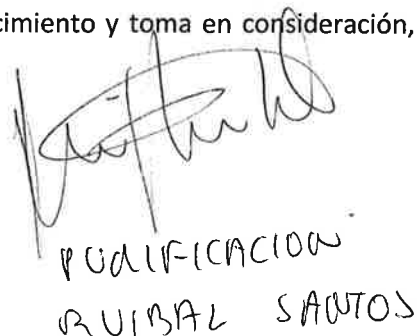 cimiento y toma en consideración,
PURIFICACION
RUIBAL SANTOS